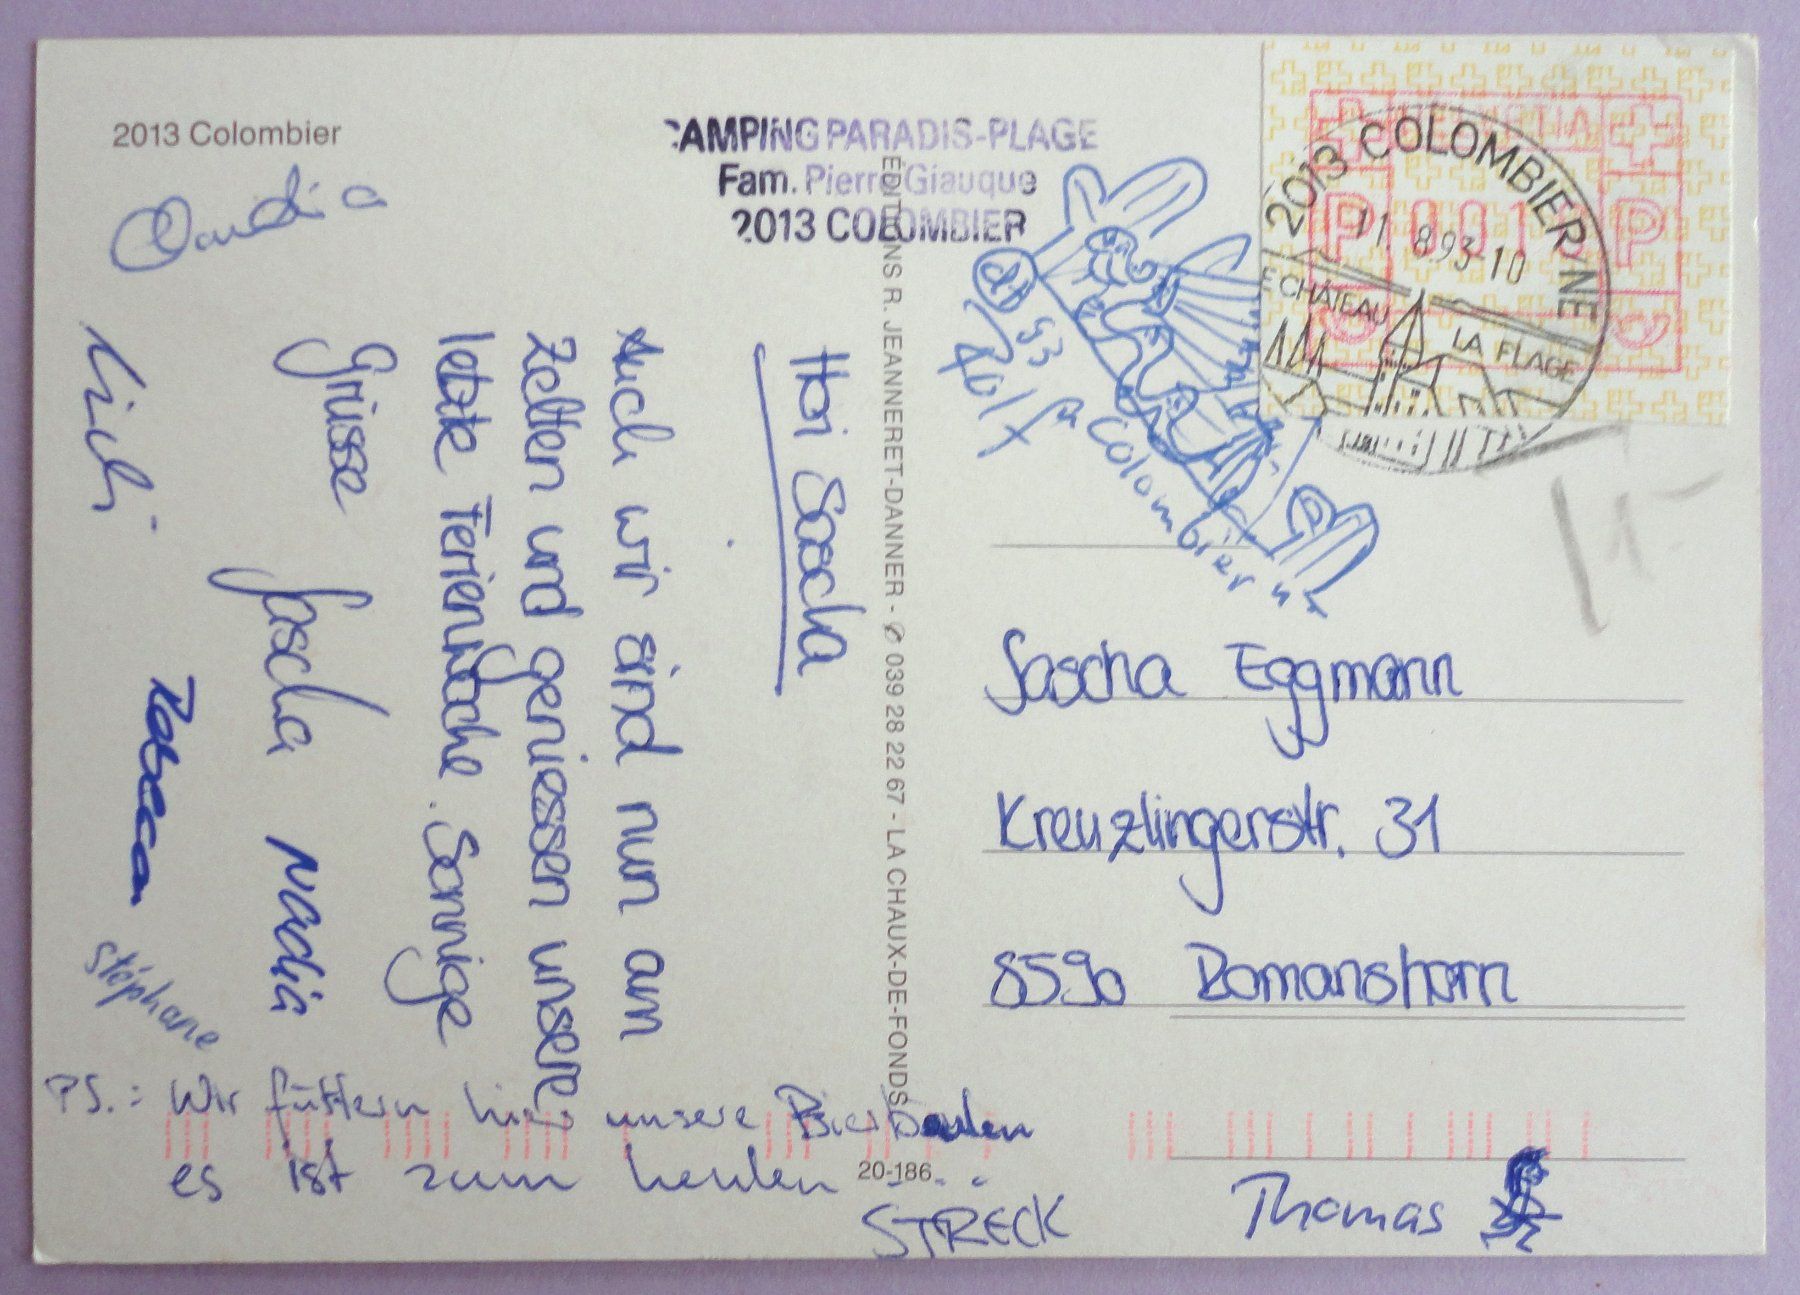 2013 Colombier
CAMPING PARADIS-PLAGE
Fam. Pierre Giauque
2013 COLOMBIER
HELVETIA
2013 COLOMBIER NE
11. 8.93-10
LE CHATEAU
LA PLAGE
Hoi Sascha
Auch wir sind nun am
Zelten und geniessen unsere
letzte Ferienwoche. Sonnige
Grüsse
Sascha Nadia
Claudia
Rebecca
Stéphane
PS.: Wir füttern hier unsere Bierbeulen
es ist zum heulen . . .
STRECK
Thomas
93
Rolf
Colombier
ÉDITIONS R. JEANNERET-DANNER - ✆ 039 28 22 67 - LA CHAUX-DE-FONDS
20-186
Sascha Eggmann
Kreuzlingerstr. 31
8590 Romanshorn